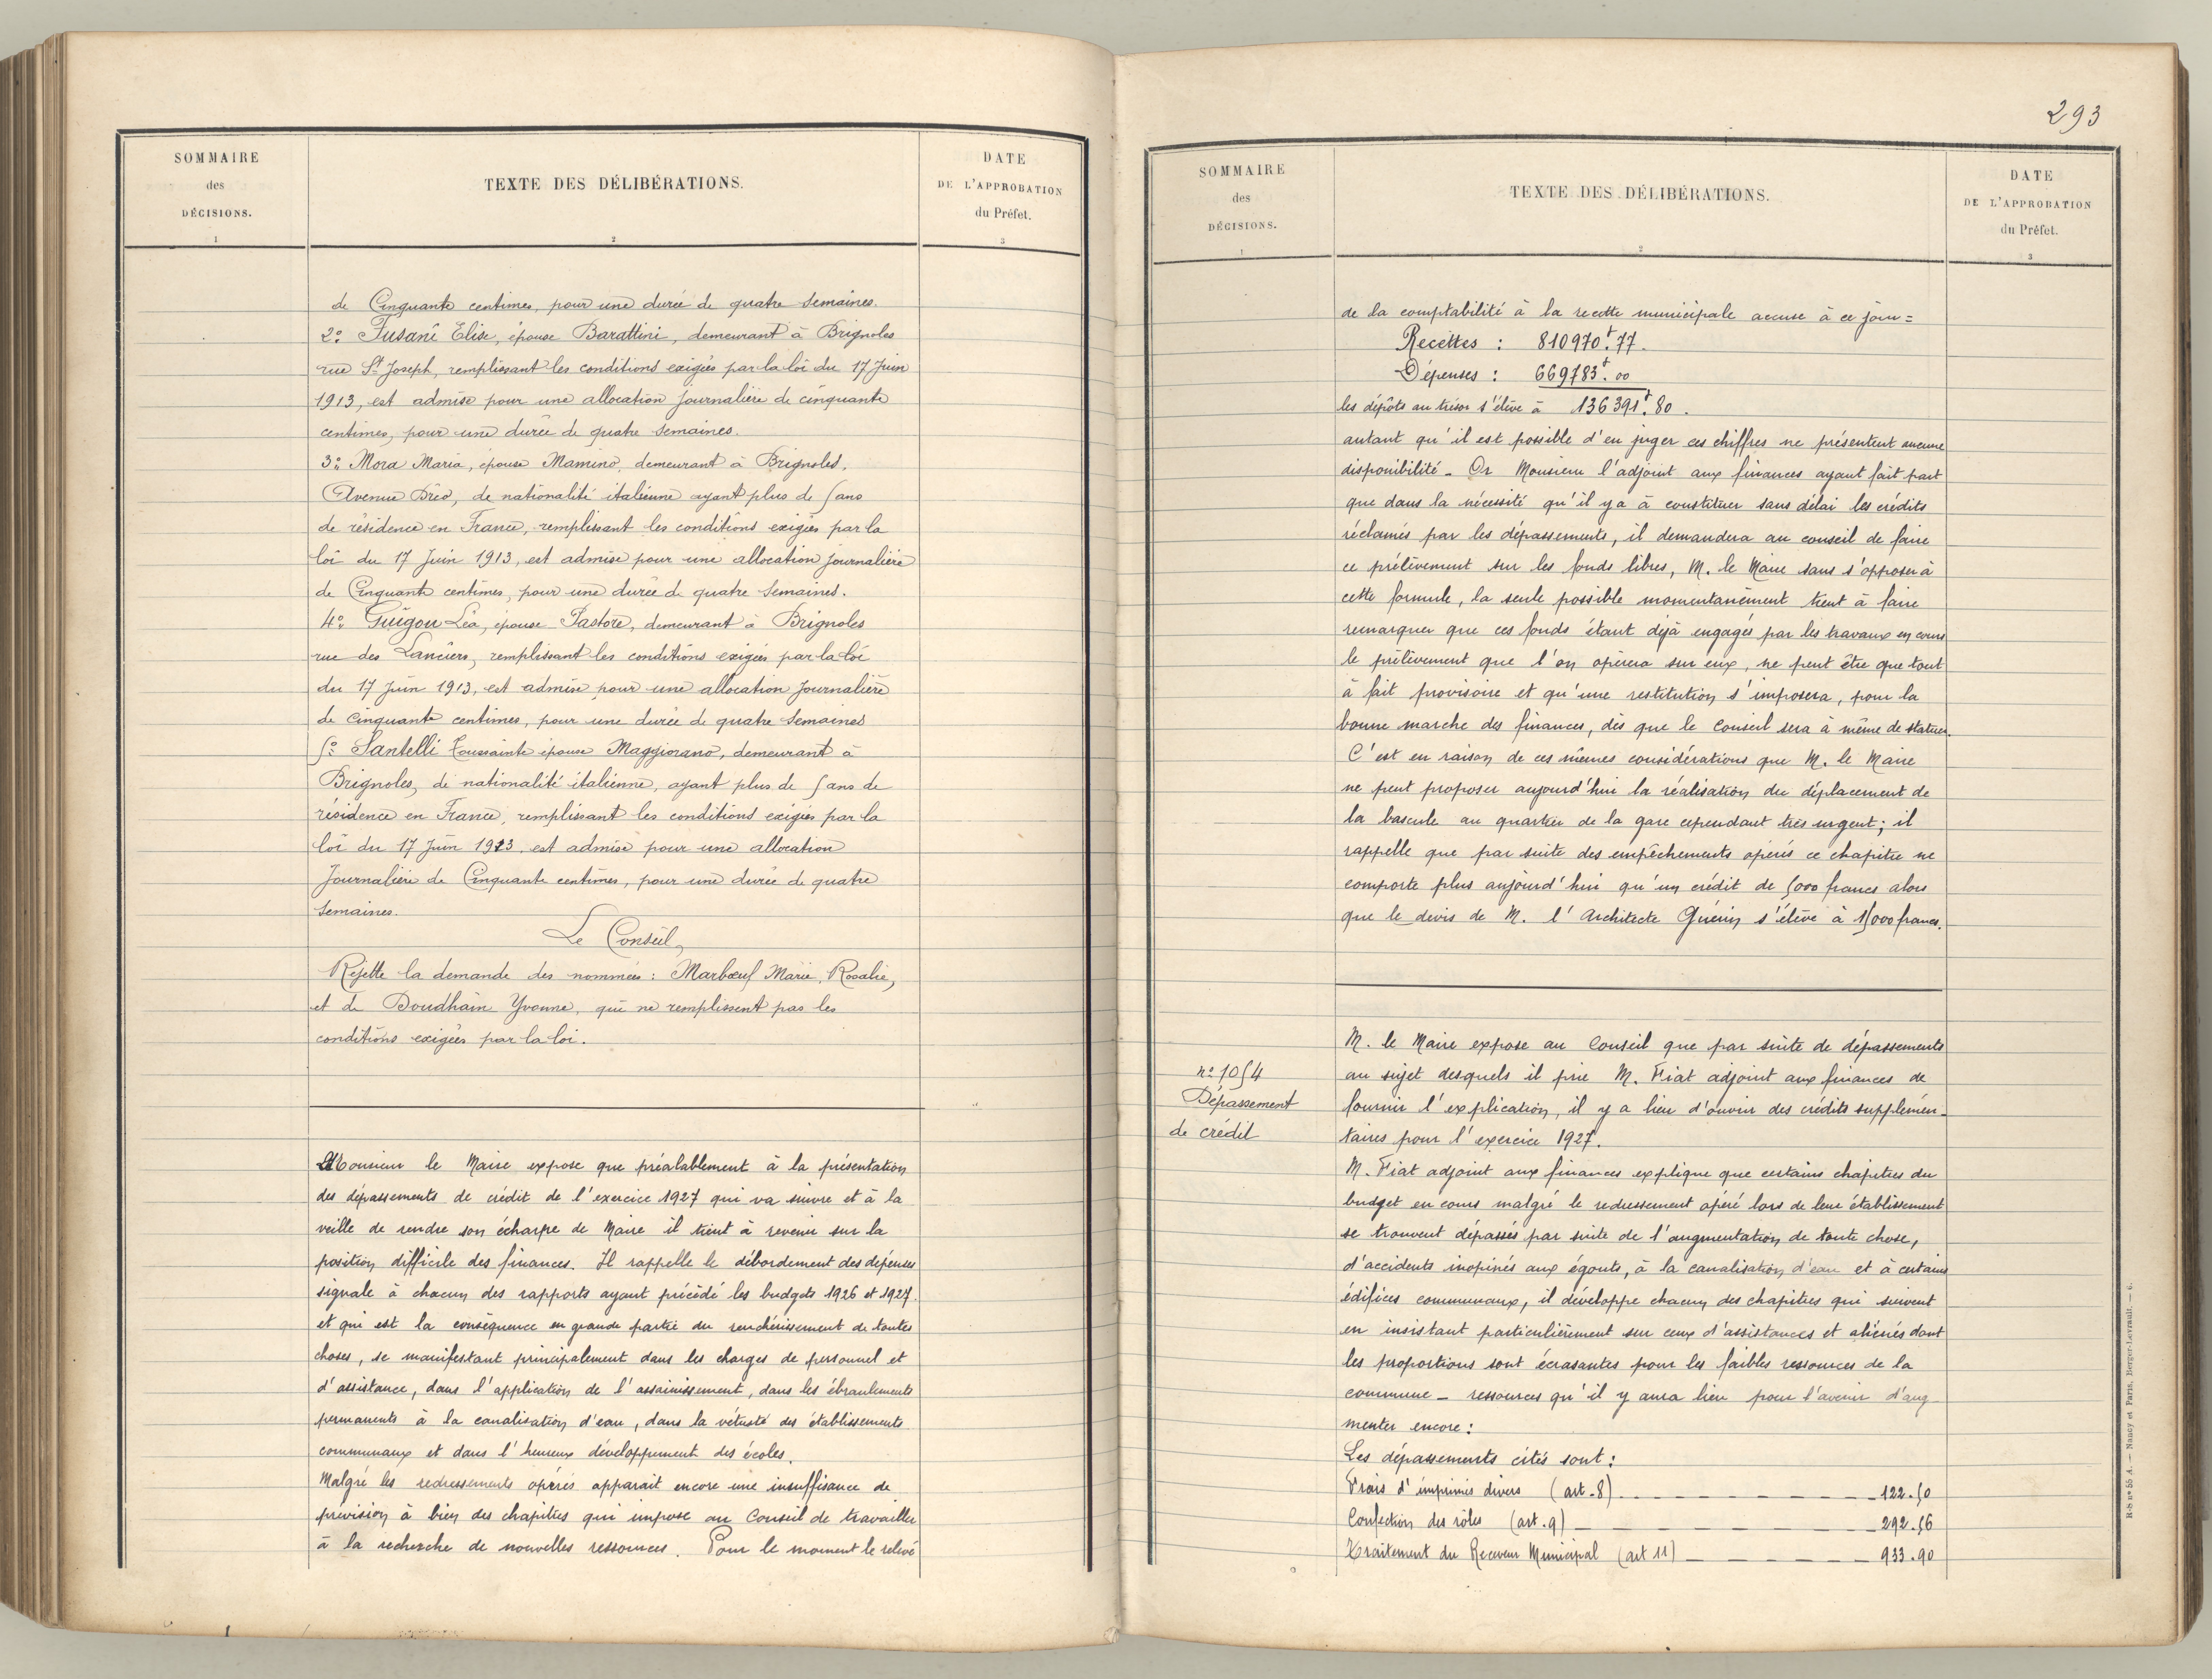 SOMMAIRE
des
DÉCISIONS.
1
TEXTE DES DÉLIBÉRATIONS.
2
DATE
DE L'APPROBATION
du Préfet.
3
de Cinquante centimes, pour une durée de quatre Semaines.
2º Fusani Elise, épouse Barattini, demeurant à Brignoles
rue St Joseph, remplissant les conditions exigées par la loi du 17 Juin
1913, est admise pour une allocation Journalière de cinquante
centimes, pour une durée de quatre Semaines.
3º Mora Maria, épouse Mamino, demeurant à Brignoles,
Avenue Dréo, de nationalité italienne ayant plus de 5 ans
de résidence en France, remplissant les conditions exigées par la
loi du 17 Juin 1913, est admise pour une allocation Journalière
de Cinquante centimes, pour une durée de quatre Semaines.
4º Guigou Léa, épouse Pastore, demeurant à Brignoles
rue des Lanciers, remplissant les conditions exigées par la loi
du 17 Juin 1913, est admise pour une allocation Journalière
de Cinquante centimes, pour une durée de quatre Semaines
5º Santelli Toussainte épouse Maggiorano, demeurant à
Brignoles, de nationalité italienne, ayant plus de 5 ans de
résidence en France, remplissant les conditions exigées par la
loi du 17 Juin 1913, est admise pour une allocation
Journalière de Cinquante centimes, pour une durée de quatre
Semaines.
Le Conseil,
Rejette la demande des nommées : Marbœuf Marie, Rosalie,
et de Doudhain Yvonne, qui ne remplissent pas les
conditions exigées par la loi.
Monsieur le Maire expose que préalablement à la présentation
des dépassements de crédit de l'exercice 1927 qui va suivre et à la
veille de rendre son écharpe de Maire il tient à revenir sur la
position difficile des finances. Il rappelle le débordement des dépenses
signalé à chacun des rapports ayant précédé les budgets 1926 et 1927.
et qui est la conséquence en grande partie du renchérissement de toutes
choses, se manifestant principalement dans les charges de personnel et
d'assistance, dans l'application de l'assainissement, dans les ébranlements
permanents à la canalisation d'eau, dans la vétusté des établissements
communaux et dans l'heureux développement des écoles.
Malgré les redressements opérés apparait encore une insuffisance de
prévision à bien des chapitres qui impose au Conseil de travailler
à la recherche de nouvelles ressources. Pour le moment le relevé
293
SOMMAIRE
des
DÉCISIONS.
1
TEXTE DES DÉLIBÉRATIONS.
2
DATE
DE L'APPROBATION
du Préfet.
3
de la comptabilité à la recette municipale accuse à ce jour =
Recettes : 810970f.77.
Dépenses : 669783f.00
les dépôts au trésor s'élève à 136391f.80.
autant qu'il est possible d'en juger ces chiffres ne présentent aucune
disponibilité - Or Monsieur l'adjoint aux finances ayant fait part
que dans la nécessité qu'il y a à constituer sans délai les crédits
réclamés par les dépassements, il demandera au conseil de faire
ce prélèvement sur les fonds libres, M. le Maire sans s'opposer à
cette formule, la seule possible momentanément tient à faire
remarquer que ces fonds étant déjà engagés par les travaux en cours
le prélèvement que l'on opèrera sur eux, ne peut être que tout
à fait provisoire et qu'une restitution s'imposera, pour la
bonne marche des finances, dès que le Conseil sera à même de statuer.
C'est en raison de ces mêmes considérations que M. le Maire
ne peut proposer aujourd'hui la réalisation du déplacement de
la bascule au quartier de la gare cependant très urgent ; il
rappelle que par suite des empêchements opérés ce chapitre ne
comporte plus aujourd'hui qu'un crédit de 5000 francs alors
que le devis de M. l'Architecte Guérin s'élève à 15000 francs.
nº 1054
Dépassement
de crédit
M. le Maire expose au Conseil que par suite de dépassements
au sujet desquels il prie M. Fiat adjoint aux finances de
fournir l'explication, il y a lieu d'ouvrir des crédits supplémen-
taires pour l'exercice 1927.
M. Fiat adjoint aux finances explique que certains chapitres du
budget en cours malgré le redressement opéré lors de leur établissement
se trouvent dépassés par suite de l'augmentation de toute chose,
d'accidents inopinés aux égouts, à la canalisation d'eau et à certains
édifices communaux, il développe chacun des chapitres qui suivent
en insistant particulièrement sur ceux d'assistances et aliénés dont
les proportions sont écrasantes pour les faibles ressources de la
commune - ressources qu'il y aura lieu pour l'avenir d'aug
menter encore :
Les dépassements cités sont :
Frais d'imprimés divers (art. 8) 122.50
Confection des rôles (art. 9) 292.56
Traitement du Receveur Municipal (art 11) 933.90
R-S nº 55 A. — Nancy et Paris, Berger-Levrault. — 6.